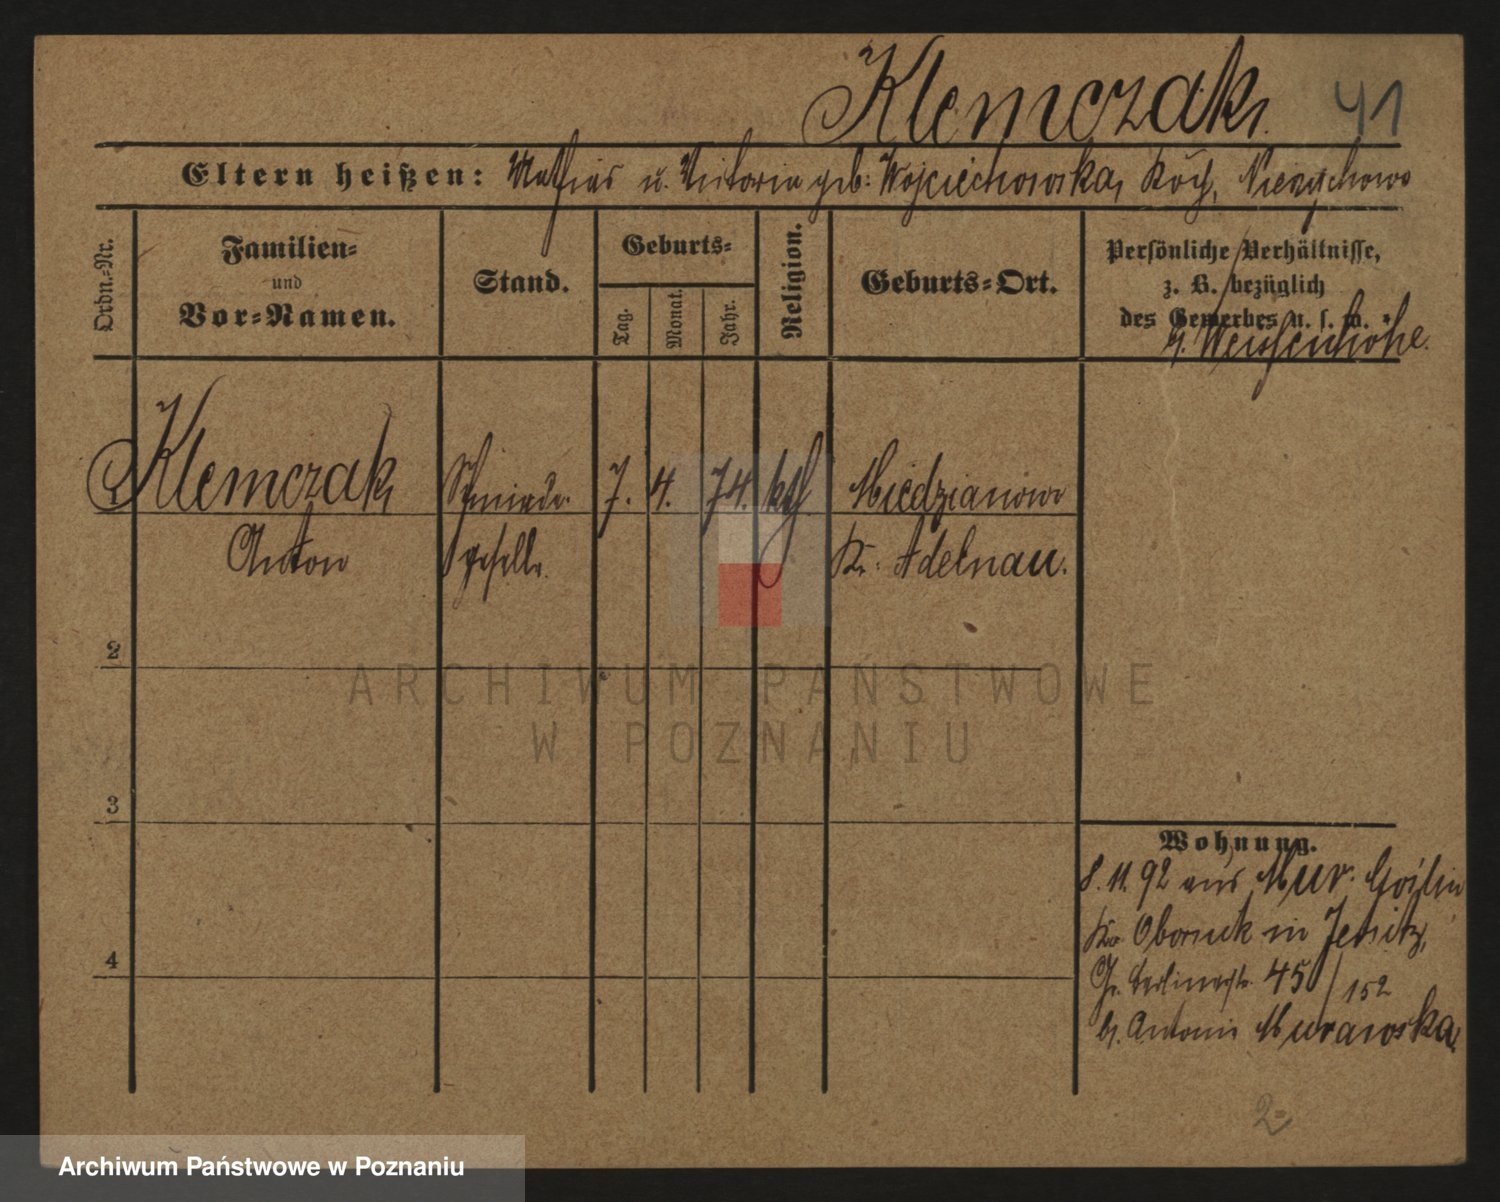 Klemczak
41
Eltern heißen: Mathias u. Victoria geb: Wojciechowska, Niezychowo
b. Weissenhöhe
Ordn.-Nr.
Familien-
und
Vor-Namen.
Stand.
Geburts-
Tag.
Monat.
Jahr.
Religion.
Geburts-Ort.
Persönliche Verhältnisse,
z. B. bezüglich
des Gewerbes u. s. w.
Klemczak Schmiede 7. 4. 74. kth Miedzianowo
Anton geselle. Kr. Adelnau.
2
3
4
Wohnung.
8. 11. 92 aus Mur. Goślin
Kr Obornik in Jersitz,
Gr. Berlinerstr. 45/152
b. Murawska
2
ARCHIWUM PAŃSTWOWE
W POZNANIU
Archiwum Państwowe w Poznaniu